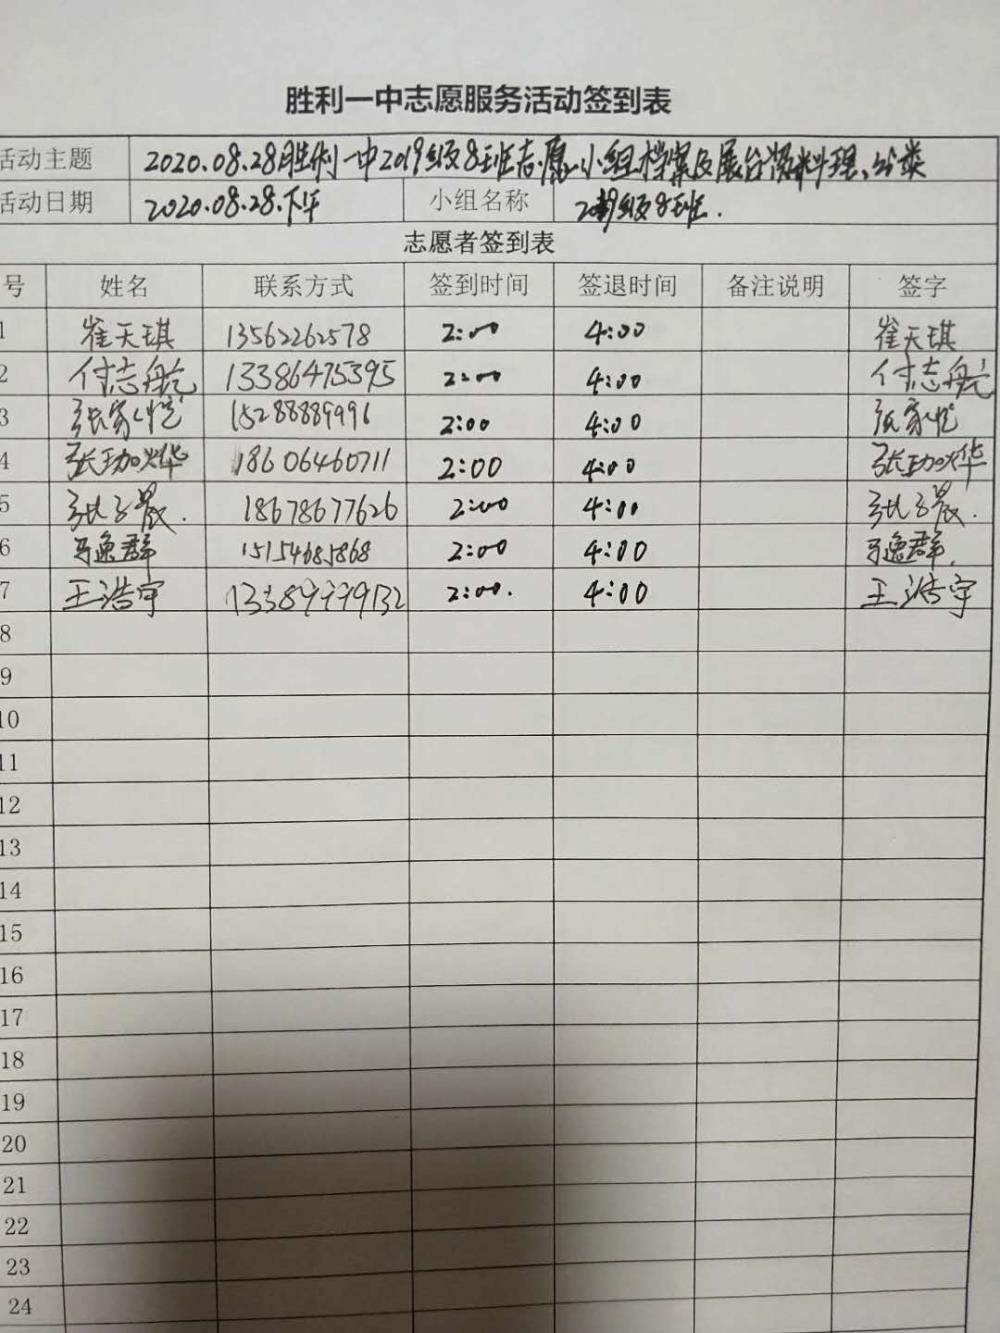 胜利一中志愿服务活动签到表
活动主题 2020.08.28胜利一中2019级8班志愿小组档案及展台资料理、分类
活动日期 2020.08.28.下午 小组名称 2019级8班.
志愿者签到表
号 姓名 联系方式 签到时间 签退时间 备注说明 签字
1 崔天琪 13562262578 2:00 4:00 崔天琪
2 付志航 13386475395 2:00 4:00 付志航
3 张家恺 15288889996 2:00 4:00 张家恺
4 张劢烨 18606460711 2:00 4:00 张劢烨
5 张子晟. 18678677626 2:00 4:00 张子晟.
6 马逸群 15154685868 2:00 4:00 马逸群.
7 王浩宇 13389999132 2:00. 4:00 王浩宇
8
9
10
11
12
13
14
15
16
17
18
19
20
21
22
23
24